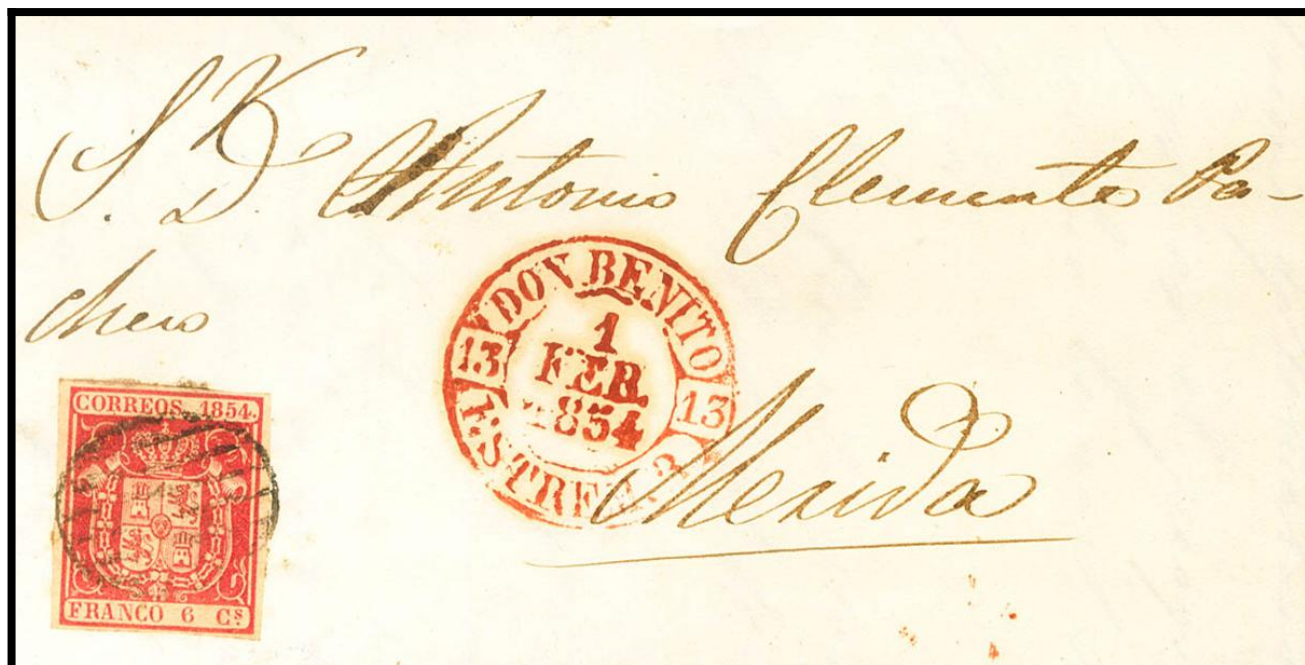 S. D. Antonio Clemente Pa-
checo
DON BENITO
13 13
1
FEB.
1854
ESTREM.
Merida
CORREOS. 1854.
FRANCO 6 Cs.